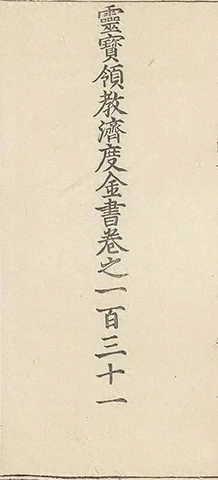 靈寶領教濟度金書卷之一百三十一